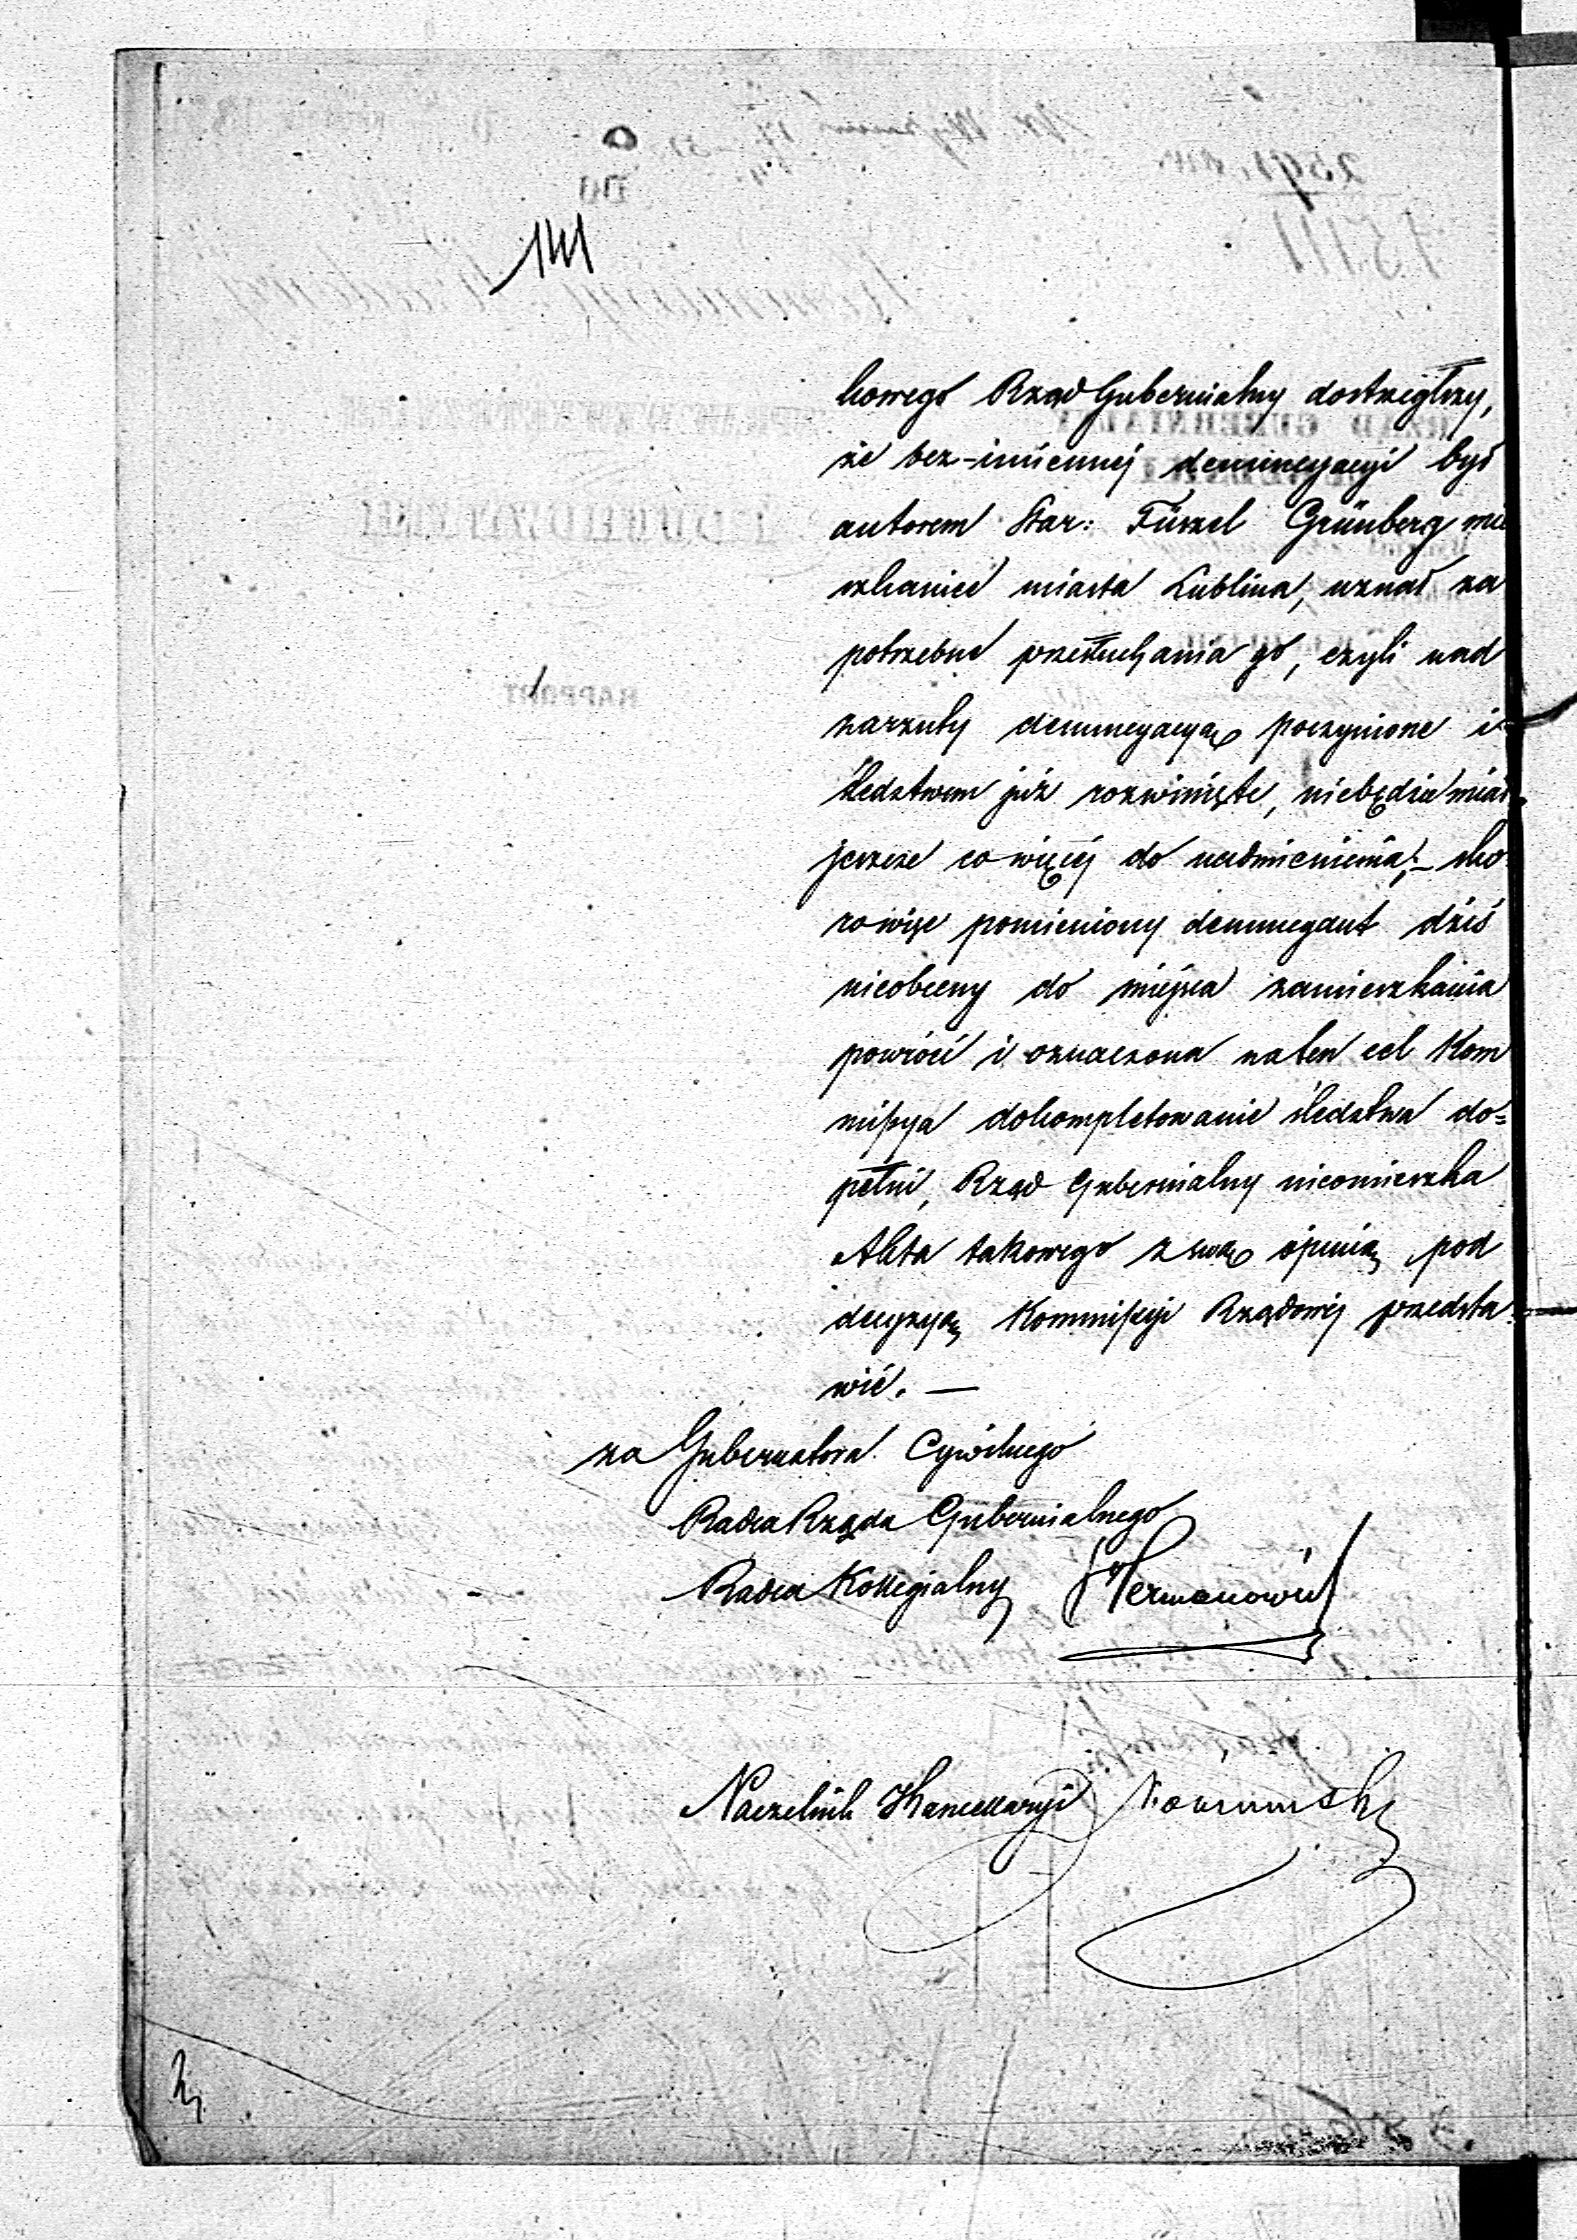 141
kowego Rząd Gubernialny dostrzegłszy,
że bez-imiennej denuncyacyi był
autorem Star: Fūszel Grünberg mie
szkaniec miasta Lublina, uznał za
potrzebne przesłuchania go, czyli nad
zarzuty denuncyacyą poczynione i
śledztwem już rozwinięte, niebędzie miał
jeszcze co więcéj do nadmienienia;— sko
ro więc pomieniony denuncyant dziś
nieobecny do miejsca zamieszkania
powróci i oznaczona na ten cel Kom
missya dokompletowanie śledztwa do=
pełni, Rząd Gubernialny nieomieszka
Akta takowego z swą opinią pod
decyzyą Kommissyi Rządowéj przedsta
wić. —
za Gubernatora Cywilnego
Radca Rządu Gubernialnego
Radca Kollegialny Hermanowicz
Naczelnik Kancellaryi